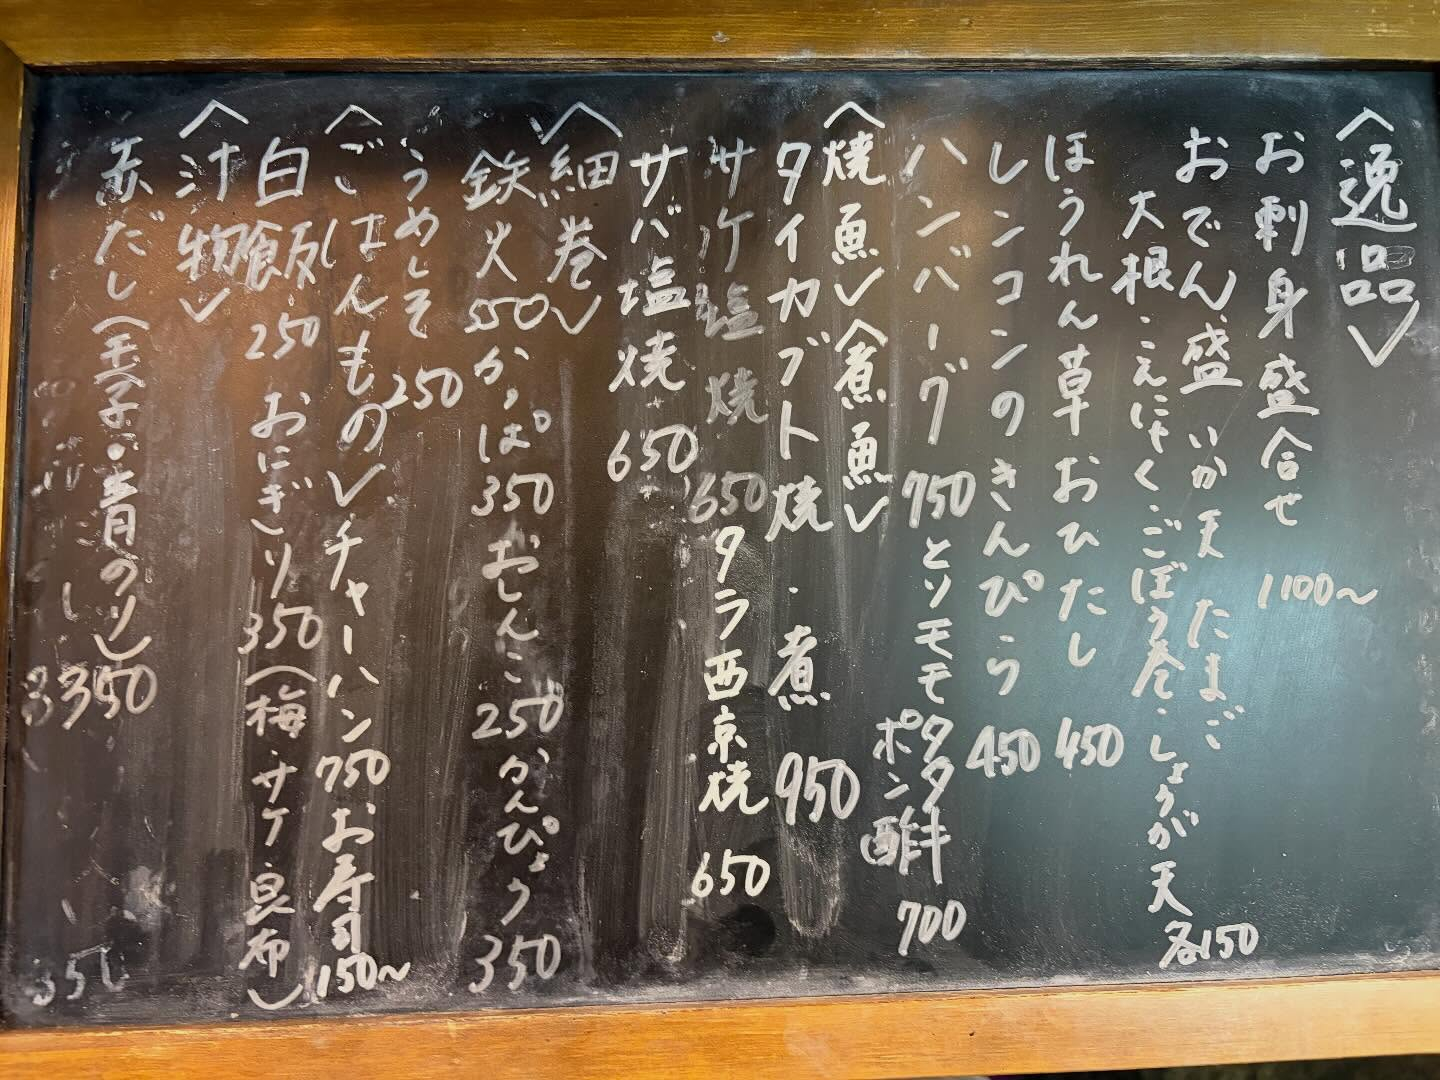 〈逸品〉
お刺身盛合せ 1100〜
おでん盛 いか天 たまご
大根・こんにゃく・ごぼう巻・しょうが天 各150
ほうれん草おひたし 450
レンコンのきんぴら 450
ハンバーグ 750 とりモモタタキ ポン酢 700
〈焼魚〉〈煮魚〉
タイカブト焼・煮 950
サケ塩焼 650 タラ西京焼 650
サバ塩焼 650
〈細巻〉
鉄火 550 かっぱ 350 おしんこ 250 かんぴょう 350
うめしそ 250
〈ごはんもの〉チャーハン 750 お寿司 150〜
白飯 250 おにぎり 350 (梅・サケ・昆布)
〈汁物〉
赤だし (玉子・青のり) 350
350